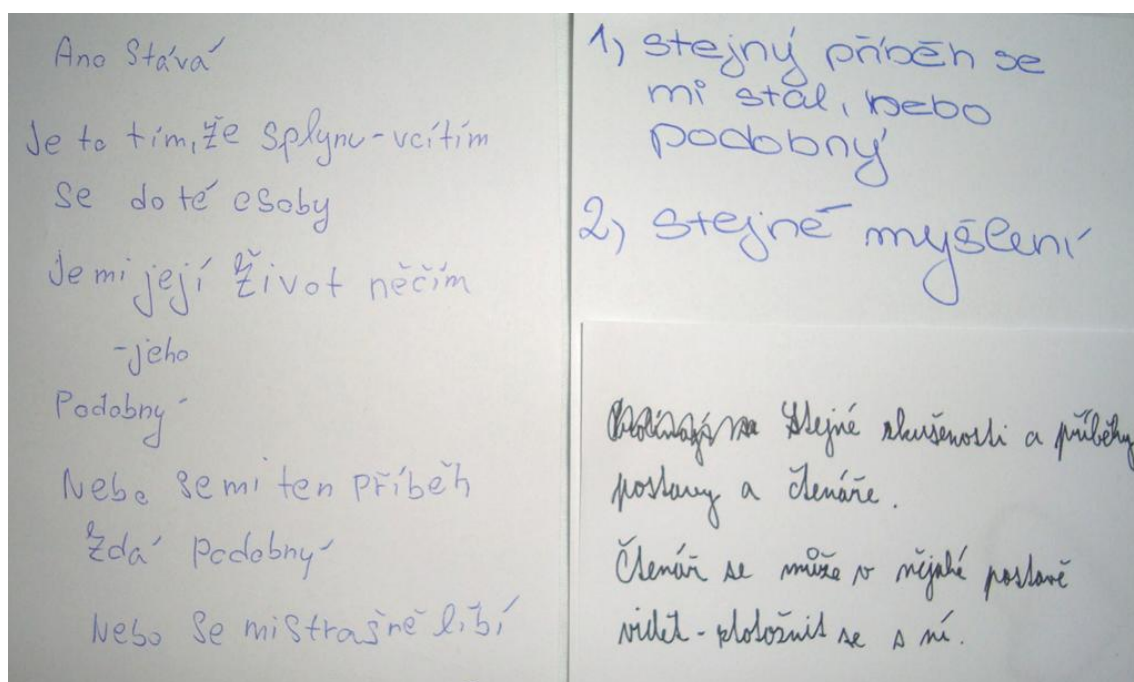 Ano Stává
Je to tím, že splynu-vcítím
se do té osoby
Je mi její život něčím
-jeho
Podobny
Nebo se mi ten příběh
Zdá podobny
Nebo se mi strašně líbí
1) stejný příběh se
mi stal, nebo
podobný
2) stejné myšlení
Stejné skušenosti a příběhy
postavy a čtenáře.
Čtenář se může v nějaké postavě
vidět - ztotožnit se s ní.